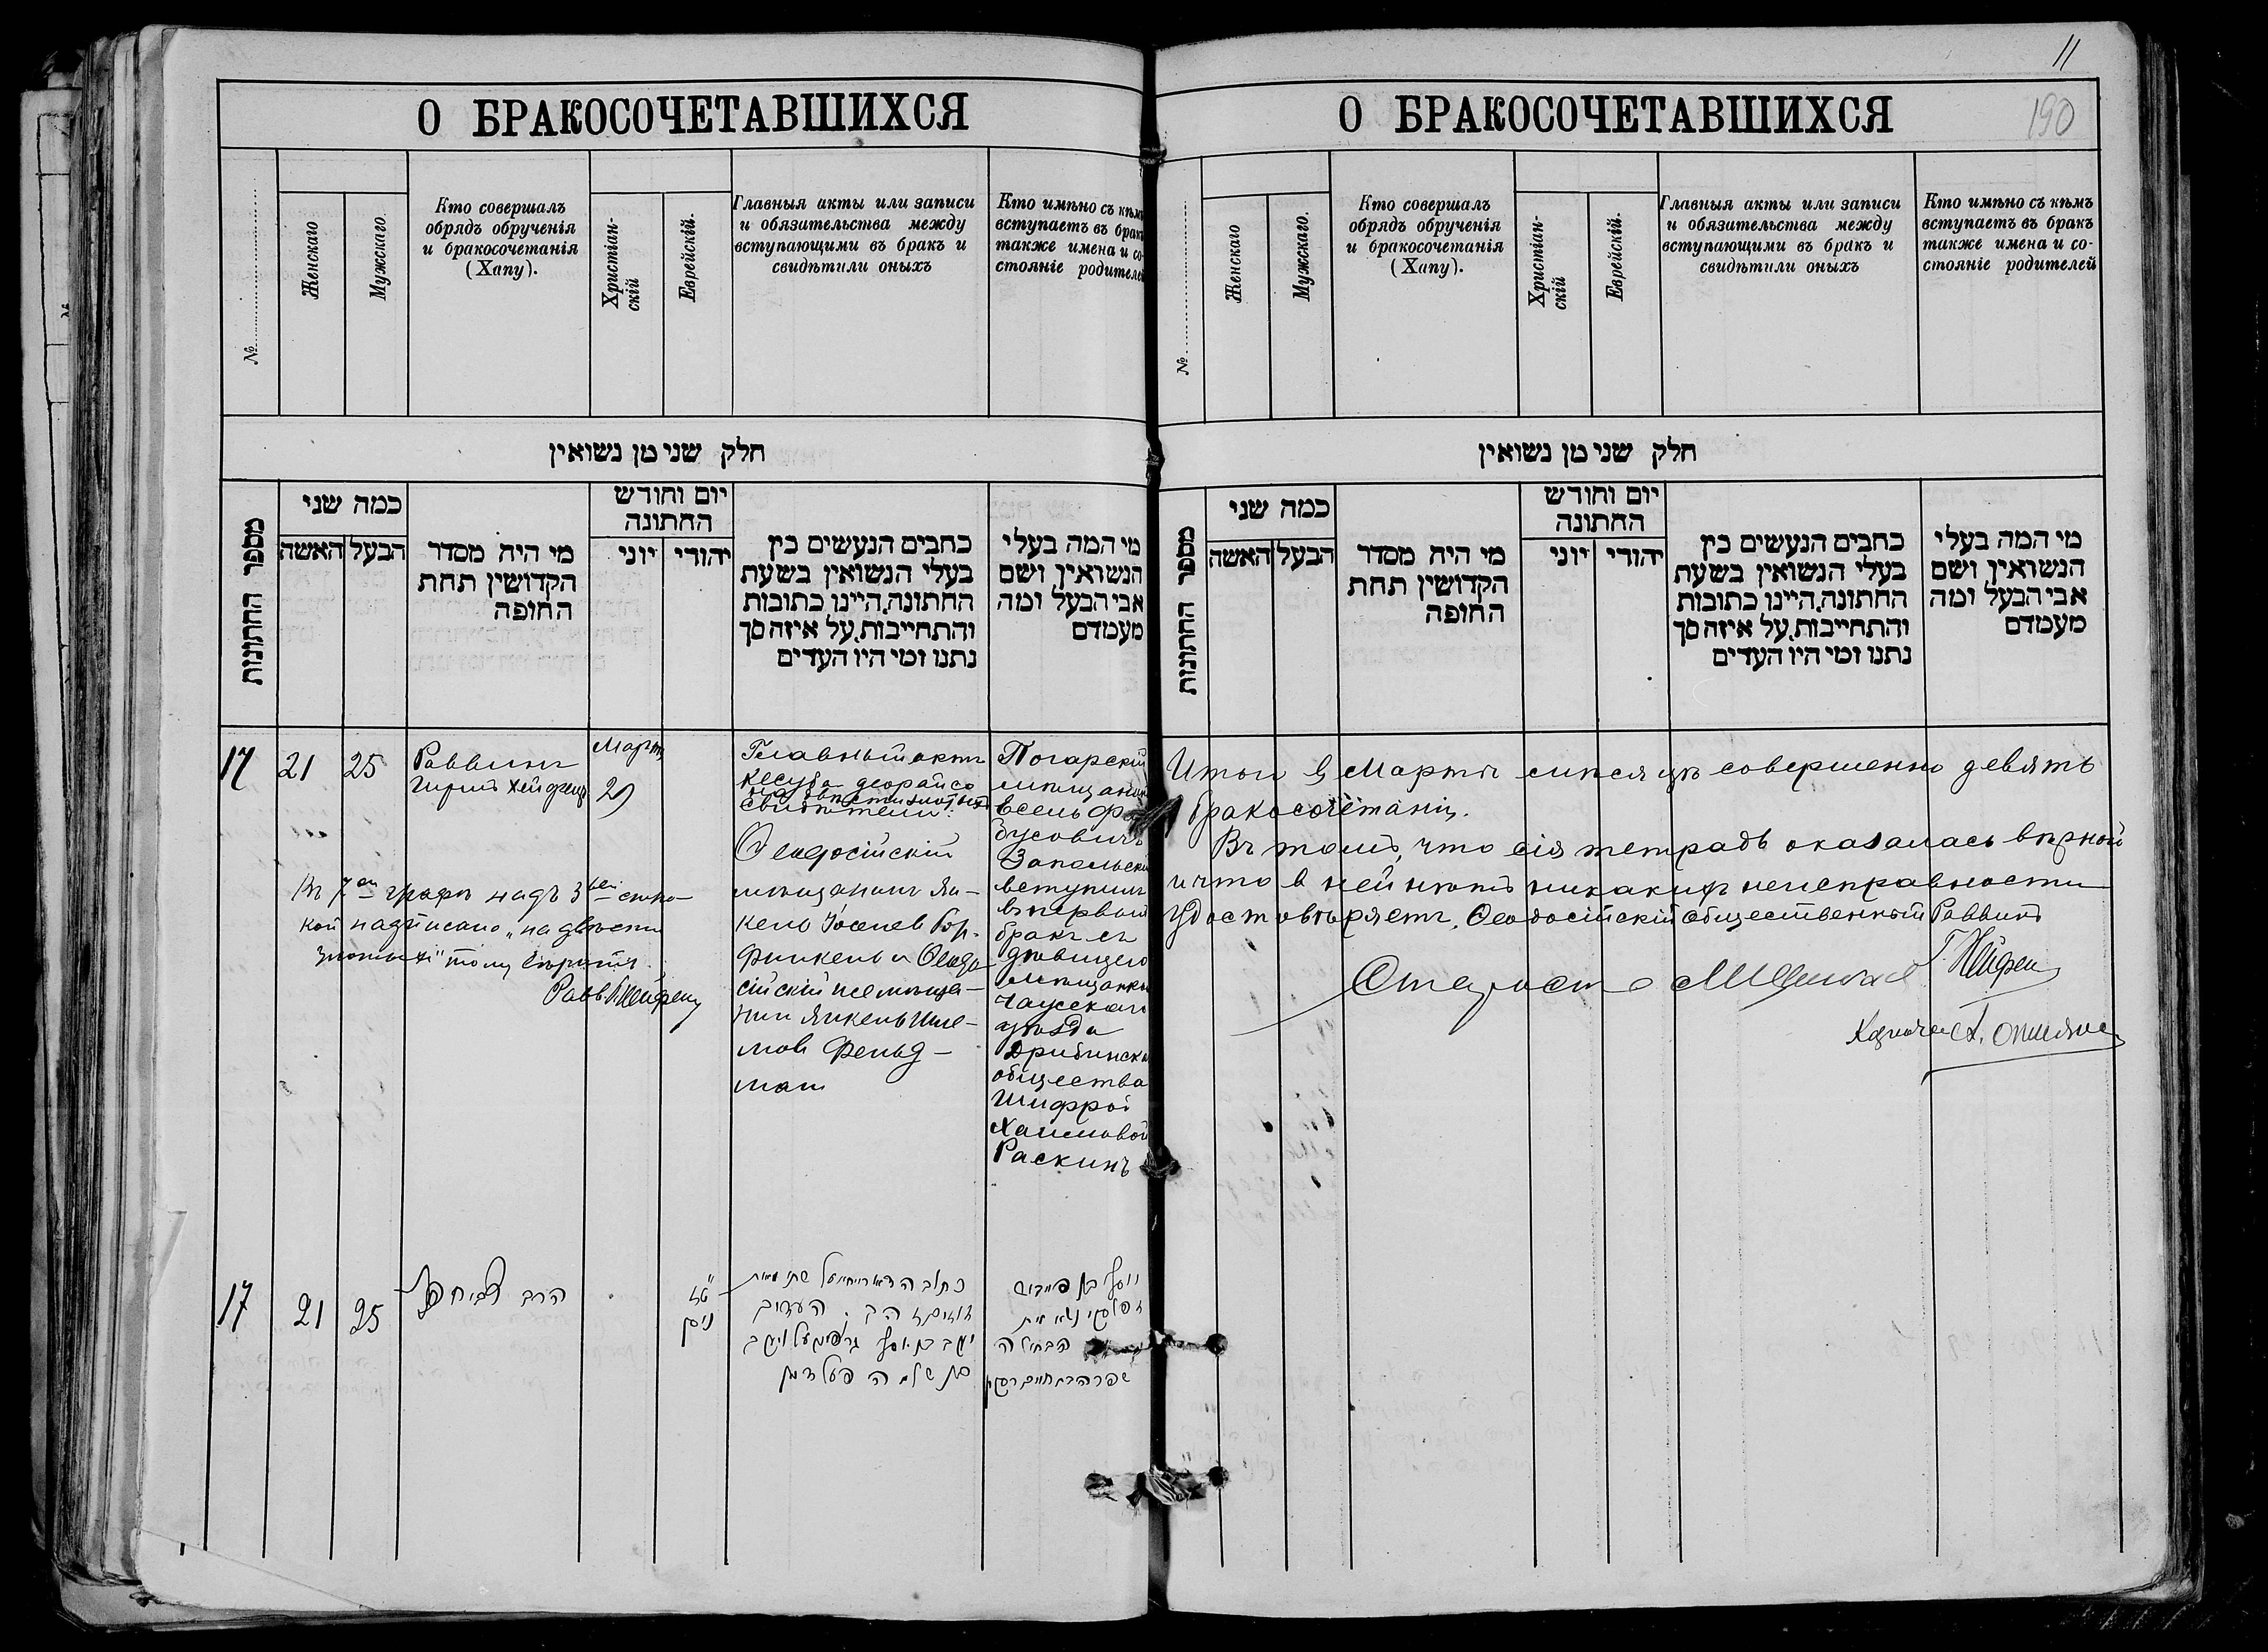 11
О БРАКОСОЧЕТАВШИХСЯ
№
Женскаго
Мужскаго
Кто совершалъ
обрядъ обрученія
и бракосочетанія
(Хапу).
Христіан-
скій
Еврейскій.
Главныя акты или записи
и обязательства между
вступающими въ бракъ и
свидѣтили оныхъ
Кто имѣно съ кѣмъ
вступаетъ въ бракъ
также имена и со-
стояніе родителей
חלק שני מן נשואין
מספר החתונות
כמה שני
האשה
הבעל
מי היה מסדר
הקדושין תחת
החופה
יום וחודש
החתונה
יוני
יהודי
כתבים הנעשים בין
בעלי הנשואין בשעת
החתונה, היינו כתובות
והתחייבות, על איזה סך
נתנו ומי היו העדים
מי המה בעלי
הנשואין ושם
אבי הבעל ומה
מעמדם
17
21
25
Раввинъ
Гиршъ Хейфецъ
Мартъ
29
Главный актъ
кесуба деорайсо
на двѣсти злотыхъ
свидѣтели:
Ѳеодосійскій
мѣщанинъ Ян-
кель Іоселев Гор-
финкель и Ѳеодо-
сійскій мѣща-
нин Янкель Шле-
мов Фельд-
ман
Погарскій
мѣщанин
Іосель Фай
бусовичъ
Запольскій
вступилъ
въ первый
бракъ съ
дѣвицею
мѣщанкой
Чаусскаго
уѣзда
Дрибинска
общества
Шифрой
Хаимовой
Раскинъ
Въ 7ой графѣ надъ 3ьей стро-
кой надписано „на двѣсти
злотыхъ" тому вѣрить.
Равв. Г. Хейфецъ
17
21
25
הרב
חפץ
ט״ז
ניסן
כתובה דאורייתא על שתי מאות
זהובים זהב. העדים
יעקב בן יוסף גורפינקעל ויעקב
בן שלמה פעלדמן
יוסף בן פייבוש
זאפאלסקי נשא את
הבתולה
שפרה בת חיים ראסקין
О БРАКОСОЧЕТАВШИХСЯ
190
№
Женскаго
Мужскаго.
Кто совершалъ
обрядъ обрученія
и бракосочетанія
(Хапу).
Христіан-
скій
Еврейскій.
Главныя акты или записи
и обязательства между
вступающими въ бракъ и
свидѣтили оныхъ
Кто имѣно съ кѣмъ
вступаетъ въ бракъ
также имена и со-
стояніе родителей
חלק שני מן נשואין
מספר החתונות
כמה שני
האשה
הבעל
מי היה מסדר
הקדושין תחת
החופה
יום וחודש
החתונה
יוני
יהודי
כתבים הנעשים בין
בעלי הנשואין בשעת
החתונה, היינו כתובות
והתחייבות, על איזה סך
נתנו ומי היו העדים
מי המה בעלי
הנשואין ושם
אבי הבעל ומה
מעמדם
Итого в Мартѣ мѣсяцѣ совершено девять
бракосочетаній.
Въ томъ, что сія тетрадь оказалась вѣрной
и что в ней нѣтъ никаких неисправности
удостовѣряетъ, Ѳеодосійскій общественный Раввинъ
Г. Хейфецъ
Староста
Казначей